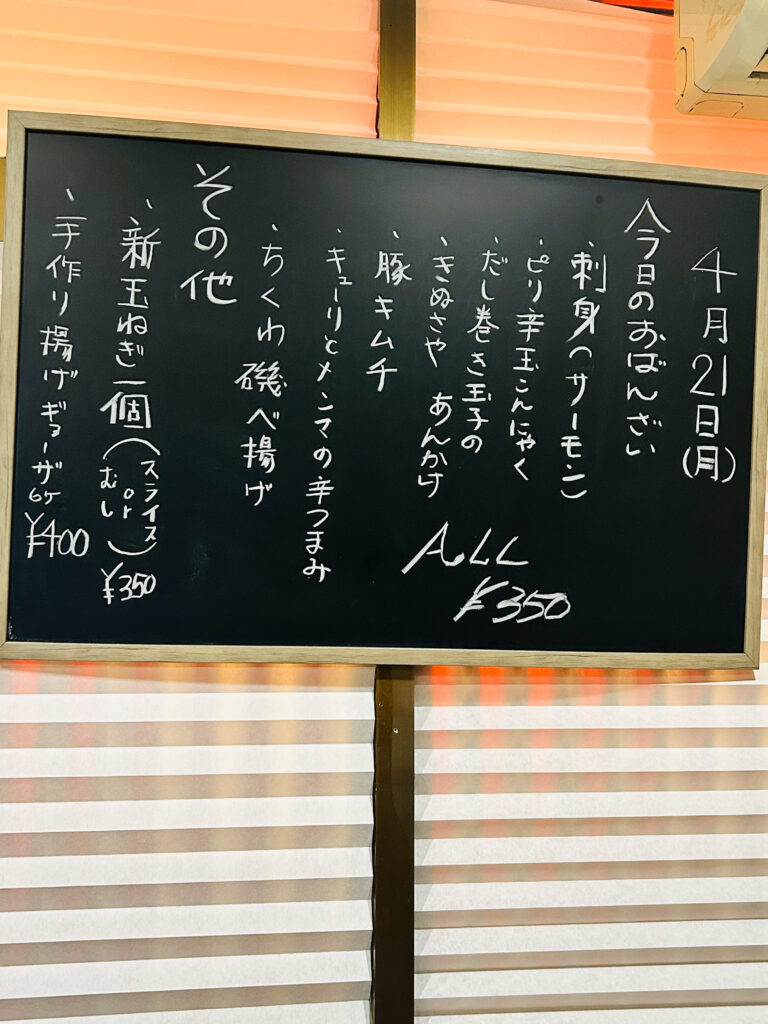 4月21日(月)
今日のおばんざい
・刺身(サーモン)
・ピリ辛玉こんにゃく
・だし巻き玉子の
きぬさや あんかけ
・豚キムチ
・キューリとメンマの辛つまみ
・ちくわ 磯べ揚げ
ALL
¥350
その他
・新玉ねぎ一個(スライス or むし) ¥350
・手作り揚げギョーザ 6ヶ ¥400